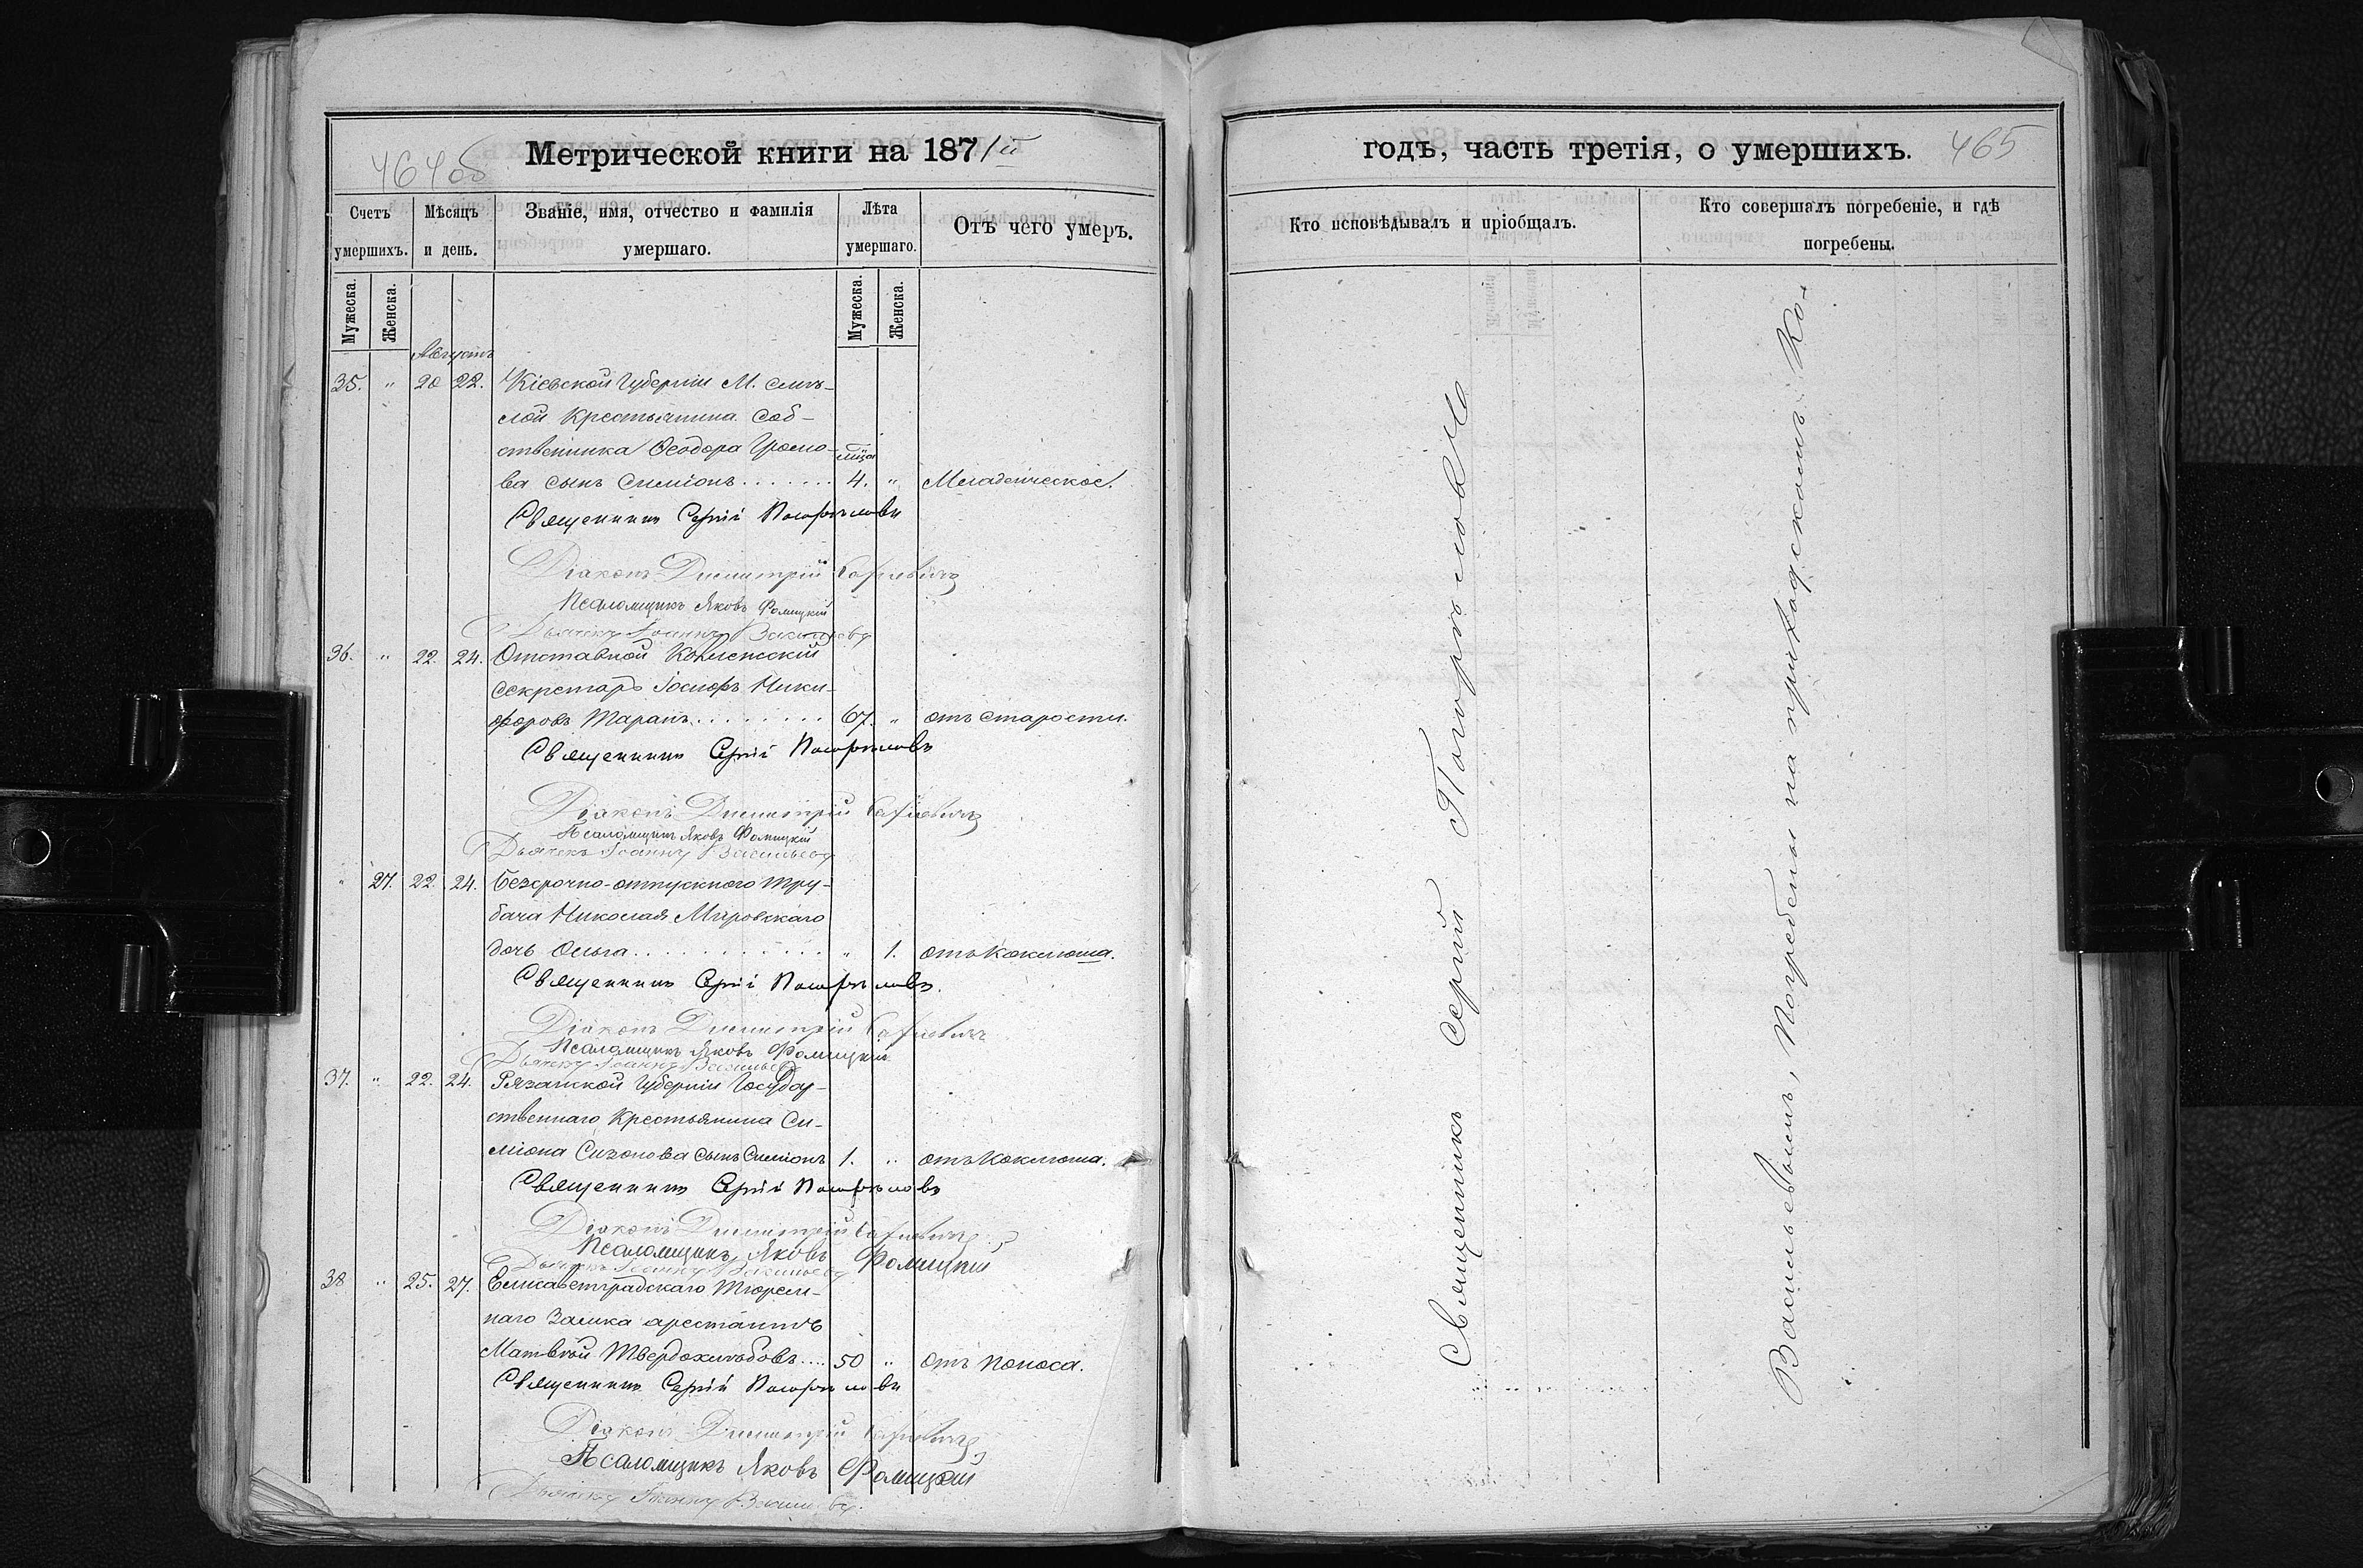 464об
Метрической книги на 1871й
Счетъ умершихъ.
Мѣсяцъ и день.
Званіе, имя, отчество и фамилія умершаго.
Лѣта умершаго.
Отъ чего умеръ.
Мужеска.
Женска.
Мужеска.
Женска.
Августъ
35. " 20 22. Кіевской Губерніи М. Смѣ-
лой Крестьянина Соб-
ственника Ѳеодора Громо- мѣся
ва сынъ Симіонъ....... 4. " Младенческое.
Священникъ Сергій Погорѣловъ
Діаконъ Димитрій
Псаломщикъ Яковъ Фомицкій
Дьячекъ Іоаннъ Васильевъ
36. " 22. 24. Отставной Коллежскій
Секретарь Іосифъ Ники-
форовъ Таранъ........ 67. " отъ старости.
Священникъ Сергій Погорѣловъ
Діаконъ Димитрій
Псаломщикъ Яковъ Фомицкій
Дьячекъ Іоаннъ Васильевъ
" 27. 22. 24. Безсрочно-отпускного тру-
бача Николая Мировскаго
дочь Ольга............ " 1. отъ коклюша.
Священникъ Сергій Погорѣловъ.
Діаконъ Димитрій
Псаломщикъ Яковъ Фомицкій
Дьячекъ Іоаннъ Васильевъ
37. " 22. 24. Рязанской Губерніи Государ-
ственнаго Крестьянина Си-
міона Сизонова сынъ Симіонъ 1. " отъ коклюша.
Священникъ Сергій Погорѣловъ
Діаконъ Димитрій
Псаломщикъ Яковъ Фомицкій
Дьячекъ Іоаннъ Васильевъ
38 " 25. 27. Елисаветградскаго Тюрем-
наго Замка арестантъ
Матвѣй Твердохлѣбовъ.... 50 " отъ поноса.
Священникъ Сергій Погорѣловъ
Діаконъ Димитрій
Псаломщикъ Яковъ Фомицкій
Дьячекъ Іоаннъ Васильевъ.
годъ, часть третія, о умершихъ. 465
Кто исповѣдывалъ и пріобщалъ.
Кто совершалъ погребеніе, и гдѣ погребены.
Священникъ Сергій Погорѣловъ
Васильевымъ, Погребены на приходскомъ Ко